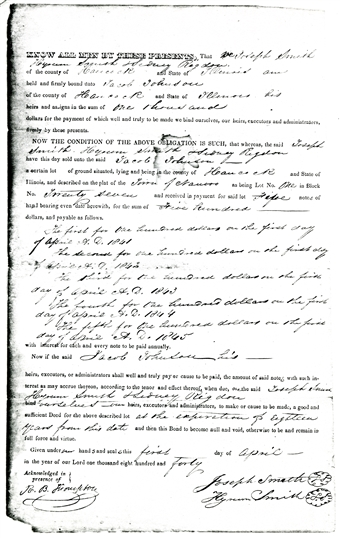 KNOW ALL MEN BY THESE PRESENTS, That We Joseph Smith
Hyrum Smith & Sidney Rigdon
of the county of Hancock and State of Illinois am
held and firmly bound unto Jacob Johnson
of the county of Hancock and State of Illinois his
heirs and assigns in the sum of One thousand
dollars for the payment of which well and truly to be made we bind ourselves, our heirs, executors and administrators,
firmly by these presents.
NOW THE CONDITION OF THE ABOVE OBLIGATION IS SUCH, that whereas, the said Joseph
Smith Hyrum Smith & Sidney Rigdon
have this day sold unto the said Jacob Johnson
a certain lot of ground situated, lying and being in the county of Hancock and State of
Illinois, and described on the plat of the Town of Nauvoo as being Lot No. One in Block
No. Twenty Seven and received in payment for said lot Five notes of
hand bearing even date herewith, for the sum of Five Hundred
dollars, and payable as follows.
The first for one hundred dollars on the first day
of April A.D. 1841
The second for one hundred dollars on the first day
of April A.D. 1842
The third for one hundred dollars on the first
day of April A.D. 1843
The fourth for one hundred dollars on the first
day of April A.D. 1844
The fifth for one hundred dollars on the first
day of April A.D. 1845
with interest for each and every note to be paid annually.
Now if the said Jacob Johnson his
heirs, executors, or administrators shall well and truly pay or cause to be paid, the amount of said notes, with such in-
terest as may accrue thereon, according to the tenor and effect thereof, when due, the said Joseph Smith
Hyrum Smith & Sidney Rigdon
our heirs, executors and administrators, to make or cause to be made, a good and
sufficient Deed for the above described lot at the expiration of eighteen
years from this date and then this Bond to become null and void, otherwise to be and remain in
full force and virtue.
Given under our hands and seals this first day of April
in the year of our Lord one thousand eight hundred and Forty
Acknowledged in
presence of
R. B. Thompson
Joseph Smith
Hyrum Smith